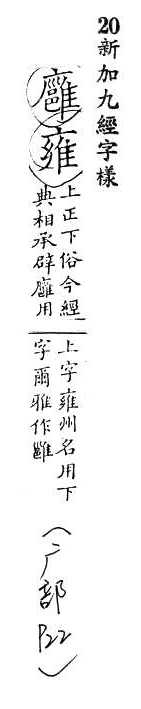 20新加九經字樣
廱雍
上正下俗今經
典相承辟廱用
上字雍州名用下
字爾雅作雝
(广部 P22)